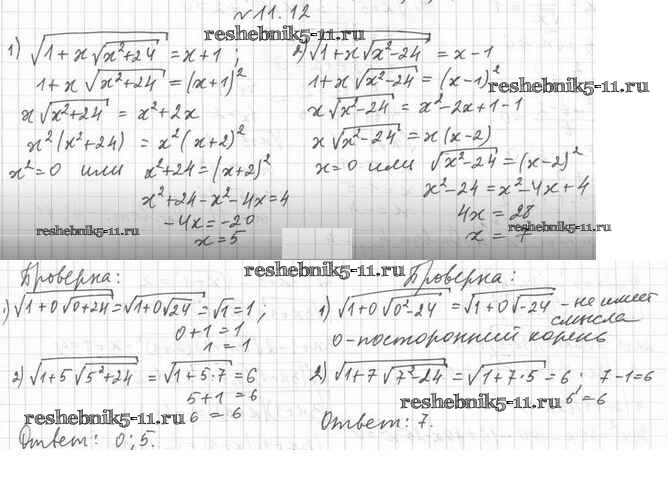 №11.12
reshebnik5-11.ru
1) √(1+x√(x²+24)) = x+1 ;
1+x√(x²+24) = (x+1)²
x√(x²+24) = x²+2x
x²(x²+24) = x²(x+2)²
x²=0 или x²+24=(x+2)²
x²+24-x²-4x=4
-4x=-20
x=5
reshebnik5-11.ru
2) √(1+x√(x²-24)) = x-1
1+x√(x²-24) = (x-1)²
reshebnik5-11.ru
x√(x²-24) = x²-2x+1-1
x√(x²-24) = x(x-2)
x=0 или √(x²-24)=(x-2)²
x²-24=x²-4x+4
4x=28
x=7
reshebnik5-11.ru
reshebnik5-11.ru
Проверка:
1) √(1+0√(0+24))=√(1+0√24)=√1=1;
0+1=1
1=1
2) √(1+5√(5²+24)) = √(1+5·7)=6
5+1=6
6=6
reshebnik5-11.ru
Ответ: 0;5.
Проверка:
1) √(1+0√(0²-24)) = √(1+0√-24) - не имеет
смысла
0-посторонний корень
2) √(1+7√(7²-24)=√(1+7·5)=6; 7-1=6
6=6
reshebnik5-11.ru
Ответ: 7.